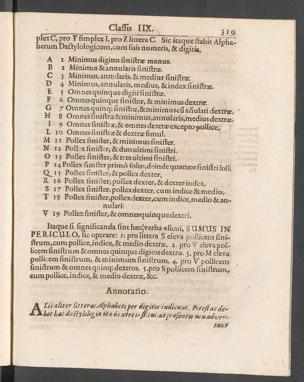 Classis IIX. 319
plex C, pro Y simplex I, pro Z littera C. Sic itaque stabit Alpha-
betum Dactylologicum, cum suis numeris, & digitis.
A 1 Minimus digitus sinistræ manus.
B 2 Minimus & annularis sinistræ.
C 3 Minimus, annularis, & medius sinistræ.
D 4 Minimus, annularis, medius, & index sinistræ.
E 5 Omnes quinque digiti sinistræ.
F 6 Omnes quinque sinistræ, & minimus dextræ.
G 7 Omnes quinq; sinistræ, & minimus cũ añulari dextræ.
H 8 Omnes sinistræ & minimus, annularis, medius dextræ.
I 9 Omnes sinistræ, & omnes dextræ excepto pollice.
L 10 Omnes sinistræ & dextræ simul.
M 11 Pollex sinister, & minimus sinister.
N 12 Pollex sinister, & duo ultimi sinistri.
O 13 Pollex sinister, & tres ultimi sinistri.
P 14 Pollex sinister primò solus, deinde quatuor sinistri soli.
Q 15 Pollex sinister, & pollex dexter.
R 16 Pollex sinister, pollex dexter, & dexter index.
S 17 Pollex sinister, pollex dexter, cum indice, & medio.
T 18 Pollex sinister, pollex dexter, cum indice, medio & an-
nulari.
V 19 Pollex sinister, & omnes quinque dextri.
Itaque si significanda sint hæc verba oscui, SUMUS IN
PERICULO, sic operare: 1. pro littera S eleva pollicem sini-
strum, cum pollice, indice, & medio dextræ. 2. pro V eleva pol-
licem sinistrum & omnes quinque digitos dextræ. 3. pro M eleva
pollicem sinistrum, & minimum sinistrum. 4. pro V pollicem
sinistrum & omnes quinq; dextros. 5. pro S pollicem sinistrum,
cum pollice, indice, & medio dextræ, &c.
Annotatio.
Aliter litteras Alphabeti per digitos indicant. Potest ac de-
bet hæc dactylologia ita dextre